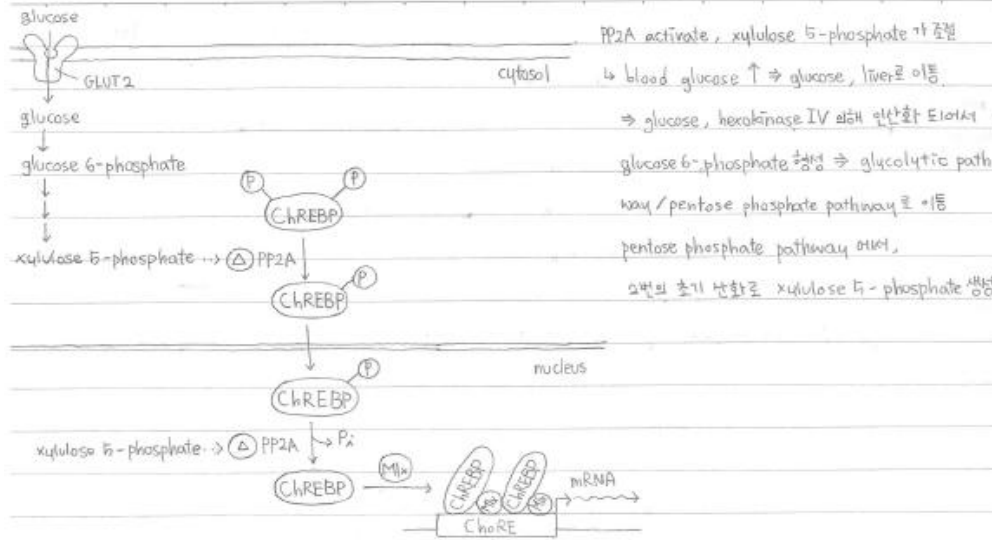 glucose
GLUT2
cytosol
glucose
glucose 6-phosphate
xylulose 5-phosphate
△ PP2A
P
P
ChREBP
P
ChREBP
nucleus
P
ChREBP
xylulose 5-phosphate
△ PP2A
Pi
ChREBP
Mlx
ChREBP
Mlx
ChREBP
Mlx
mRNA
ChoRE
PP2A activate, xylulose 5-phosphate 가 조절
↳ blood glucose ↑ ⇒ glucose, liver로 이동
⇒ glucose, hexokinase IV 의해 인산화 되어서
glucose 6-phosphate 형성 ⇒ glycolytic path
way/pentose phosphate pathway로 이동
pentose phosphate pathway 에서,
2번의 초기 산화로 xylulose 5-phosphate 생성